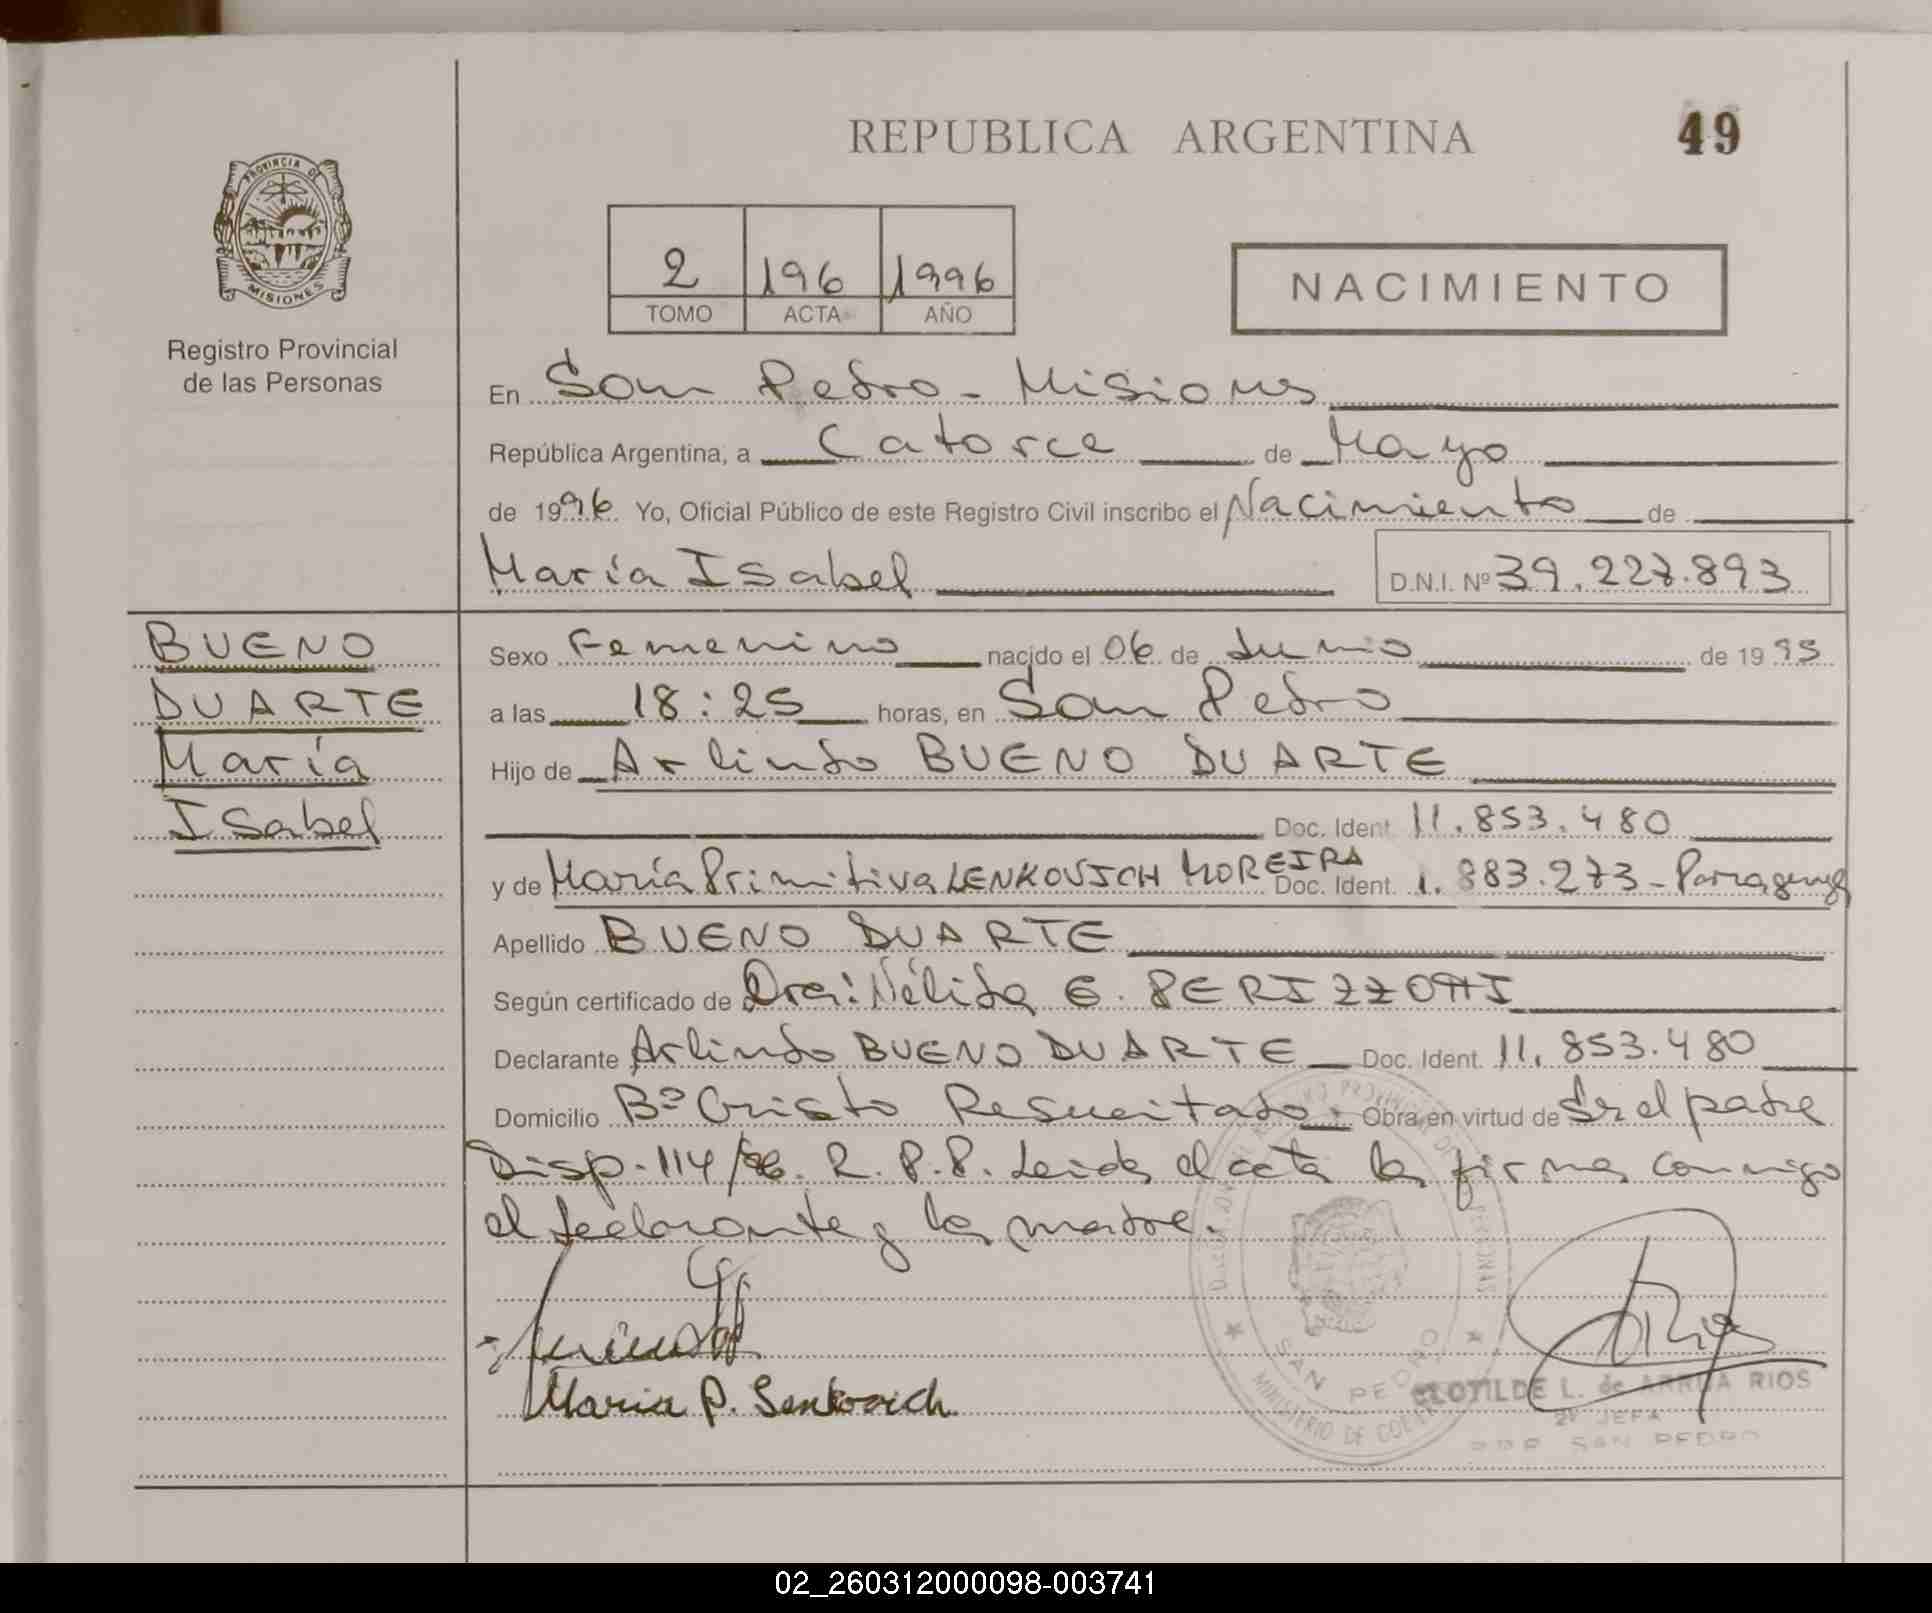 REPUBLICA ARGENTINA
49
PROVINCIA DE
MISIONES
Registro Provincial
de las Personas
2 196 1996
TOMO ACTA AÑO
NACIMIENTO
En San Pedro - Misiones
República Argentina, a Catorce de Mayo
de 1996 Yo, Oficial Público de este Registro Civil inscribo el Nacimiento de
María Isabel D.N.I. Nº 39.227.893
BUENO
DUARTE
María
Isabel
Sexo Femenino nacido el 06 de Junio de 1995
a las 18:25 horas, en San Pedro
Hijo de Arlindo BUENO DUARTE
Doc. Ident. 11.853.480
y de María Primitiva LENKOVICH MOREIRA Doc. Ident. 1.883.273 - Paraguaya
Apellido BUENO DUARTE
Según certificado de Dra: Nélida G. PERIZZOTTI
Declarante Arlindo BUENO DUARTE Doc. Ident. 11.853.480
Domicilio Bº Cristo Resucitado. Obra en virtud de Ser el padre
Disp. 114/96. R.P.P. Leida el acta la firma conmigo
el declarante y la madre.
Maria P. Lenkovich
SAN PEDRO
MINISTERIO DE
CLOTILDE L. de ARRUA RIOS
2ª JEFA
SAN PEDRO
02_260312000098-003741